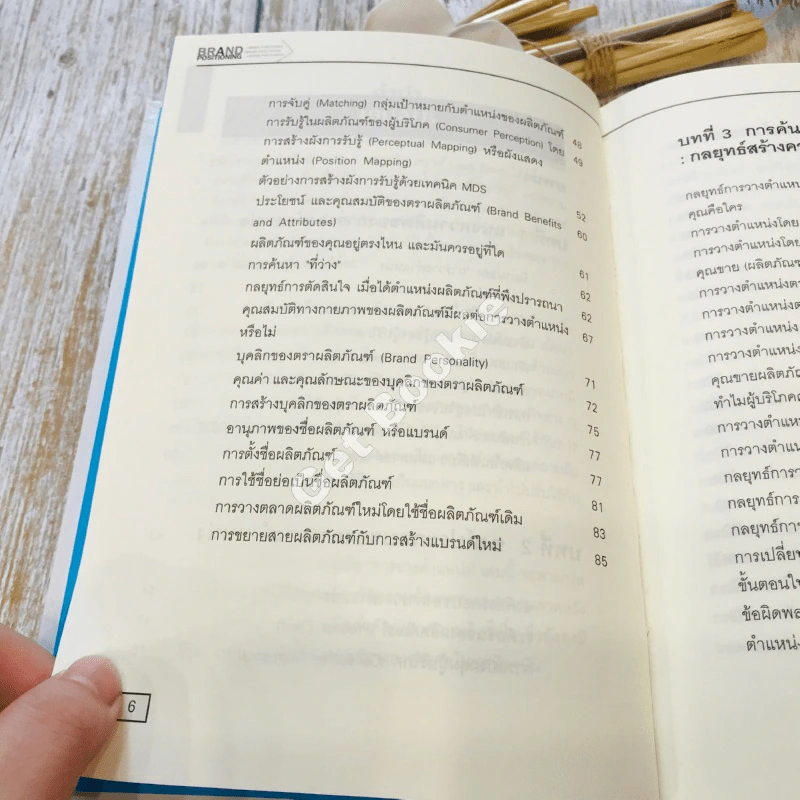 BRAND
POSITIONING
การจับคู่ (Matching) กลุ่มเป้าหมายกับตำแหน่งของผลิตภัณฑ์ 48
การรับรู้ในผลิตภัณฑ์ของผู้บริโภค (Consumer Perception) โดย 49
การสร้างผังการรับรู้ (Perceptual Mapping) หรือผังแสดง
ตำแหน่ง (Position Mapping)
ตัวอย่างการสร้างผังการรับรู้ด้วยเทคนิค MDS 52
ประโยชน์ และคุณสมบัติของตราผลิตภัณฑ์ (Brand Benefits 60
and Attributes)
ผลิตภัณฑ์ของคุณอยู่ตรงไหน และมันควรอยู่ที่ใด 61
การค้นหา "ที่ว่าง" 62
กลยุทธ์การตัดสินใจ เมื่อได้ตำแหน่งผลิตภัณฑ์ที่พึงปรารถนา 62
คุณสมบัติทางกายภาพของผลิตภัณฑ์มีผลต่อการวางตำแหน่ง 67
หรือไม่
บุคลิกของตราผลิตภัณฑ์ (Brand Personality) 71
คุณค่า และคุณลักษณะของบุคลิกของตราผลิตภัณฑ์ 72
การสร้างบุคลิกของตราผลิตภัณฑ์ 75
อานุภาพของชื่อผลิตภัณฑ์ หรือแบรนด์ 77
การตั้งชื่อผลิตภัณฑ์ 77
การใช้ชื่อย่อเป็นชื่อผลิตภัณฑ์ 81
การวางตลาดผลิตภัณฑ์ใหม่โดยใช้ชื่อผลิตภัณฑ์เดิม 83
การขยายสายผลิตภัณฑ์กับการสร้างแบรนด์ใหม่ 85
6
Get Bookie
บทที่ 3 การค้น
: กลยุทธ์สร้างคว
กลยุทธ์การวางตำแห
คุณคือใคร
การวางตำแหน่งโดย
การวางตำแหน่งโดย
คุณขาย (ผลิตภัณฑ
การวางตำแหน่งตร
การวางตำแหน่งต
การวางตำแหน่ง
การวางตำแหน่ง
คุณขายผลิตภัณ
ทำไมผู้บริโภคถ
การวางตำแห
การวางตำแน
กลยุทธ์การว
กลยุทธ์การ
กลยุทธ์การ
การเปลี่ยน
ขั้นตอนใน
ข้อผิดพล
ตำแหน่ง